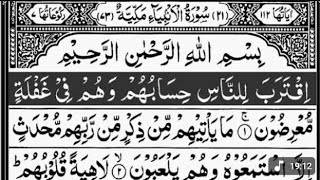 اٰيَاتُهَا ١١٢ (٢١) سُوْرَةُ الْاَنْۢبِيَآءِ مَكِّيَّةٌ (٧٣) رُكُوْعَاتُهَا ٧
بِسْمِ اللّٰهِ الرَّحْمٰنِ الرَّحِيْمِ
اِقْتَرَبَ لِلنَّاسِ حِسَابُهُمْ وَهُمْ فِيْ غَفْلَةٍ
مُّعْرِضُوْنَ ۚ ١ مَا يَاْتِيْهِمْ مِّنْ ذِكْرٍ مِّنْ رَّبِّهِمْ مُّحْدَثٍ
اِلَّا اسْتَمَعُوْهُ وَهُمْ يَلْعَبُوْنَ ٢ لَاهِيَةً قُلُوْبُهُمْ ط
19:12